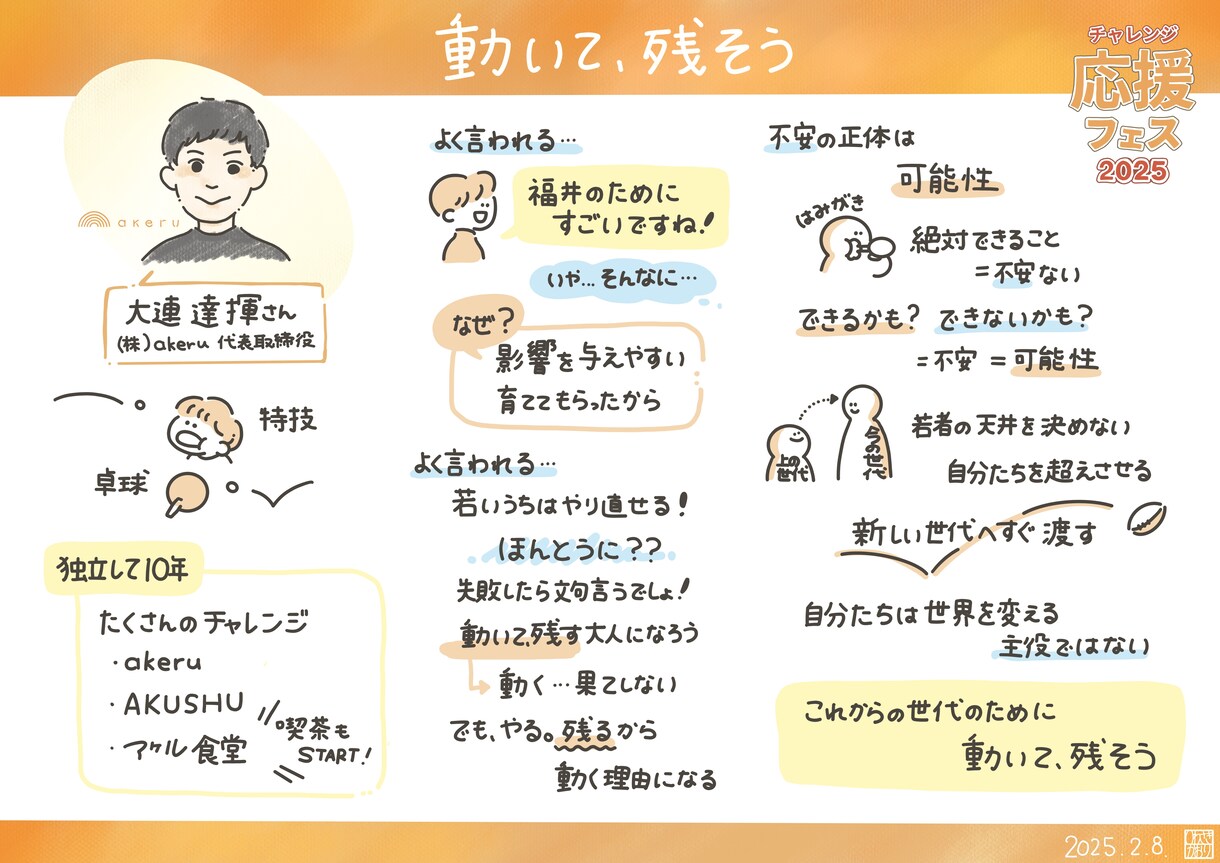 動いて、残そう
チャレンジ
応援
フェス
2025
akeru
大連 達揮さん
(株)akeru 代表取締役
特技
卓球
独立して10年
たくさんのチャレンジ
・akeru
・AKUSHU
・アケル食堂
喫茶も
START!
よく言われる…
福井のために
すごいですね!
いや…そんなに…
なぜ?
影響を与えやすい
育ててもらったから
よく言われる…
若いうちはやり直せる!
ほんとうに??
失敗したら文句言うでしょ!
動いて、残す大人になろう
動く…果てしない
でも、やる。残るから
動く理由になる
不安の正体は
可能性
はみがき
絶対できること
=不安ない
できるかも? できないかも?
=不安 =可能性
上の世代
今の世代
若者の天井を決めない
自分たちを超えさせる
新しい世代へすぐ渡す
自分たちは世界を変える
主役ではない
これからの世代のために
動いて、残そう
2025.2.8.